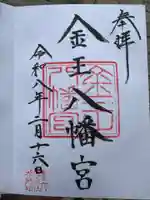 奉拝
金王八幡宮
令和八年二月十六日